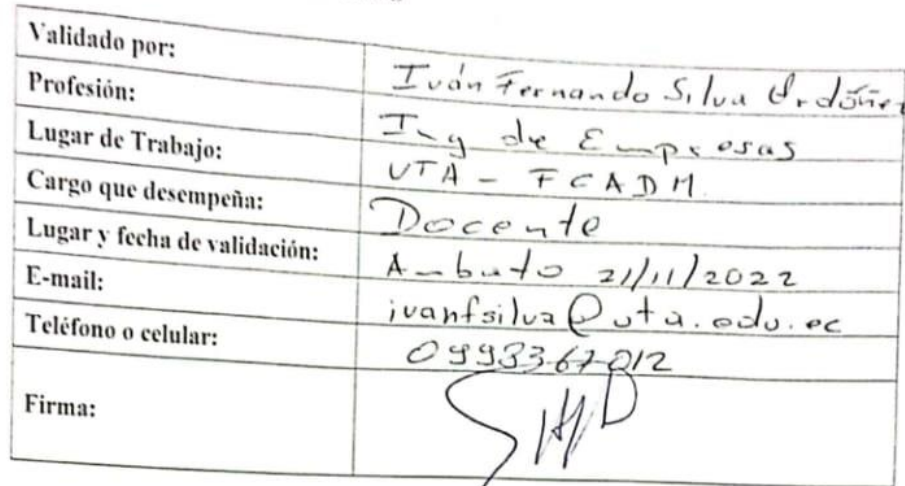 Validado por: Iván Fernando Silva Ordóñez
Profesión: Ing de Empresas
Lugar de Trabajo: UTA - FCADM.
Cargo que desempeña: Docente
Lugar y fecha de validación: Ambato 21/11/2022
E-mail: ivanfsilva@uta.edu.ec
Teléfono o celular: 0993367012
Firma: